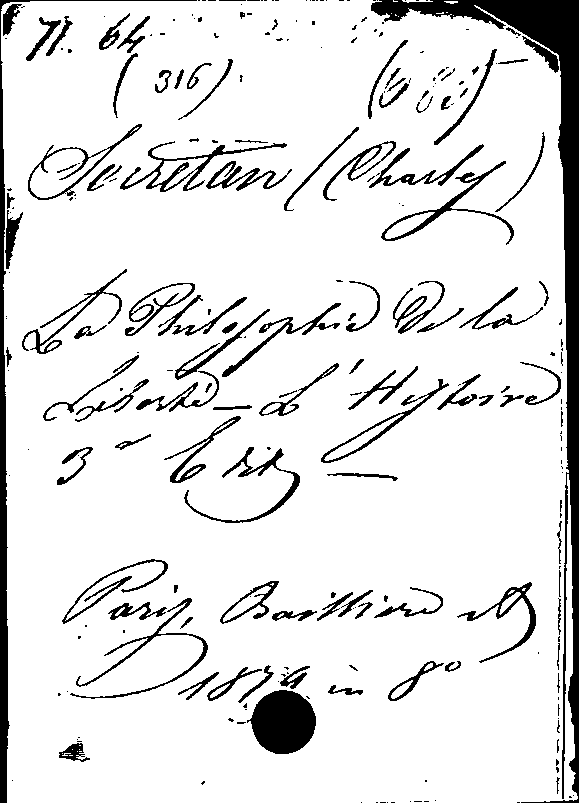 N. 64
(316)
Secretan (Charles)
La Philosophie de la
Liberté — L'Histoire
3e Edit —
Paris, Baillière et
1879 in 8°